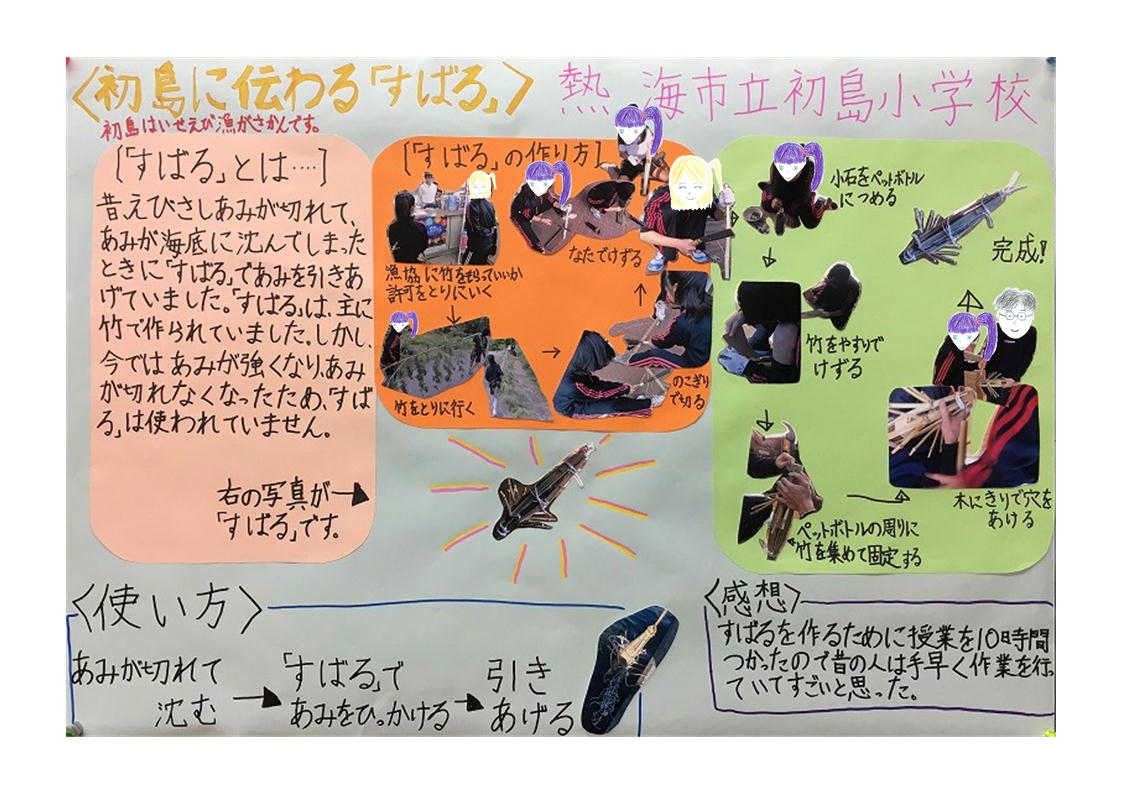 〈初島に伝わる「すばる」〉
熱海市立初島小学校
初島はいせえび漁がさかんです。
[「すばる」とは‥‥]
昔えびさしあみが切れて、
あみが海底に沈んでしまった
ときに「すばる」であみを引きあ
げていました。「すばる」は、主に
竹で作られていました。しかし、
今ではあみが強くなり、あみ
が切れなくなったため、「すば
る」は使われていません。
右の写真が
「すばる」です。
[「すばる」の作り方]
漁協に竹をもらっていいか
許可をとりにいく
竹をとりに行く
のこぎり
で切る
なたでけずる
小石をペットボトル
につめる
竹をやすりで
けずる
ペットボトルの周りに
竹を集めて固定する
木にきりで穴を
あける
完成!
〈使い方〉
あみが切れて
沈む
「すばる」で
あみをひっかける
引き
あげる
〈感想〉
すばるを作るために授業を10時間
つかったので昔の人は手早く作業を行っ
ていてすごいと思った。